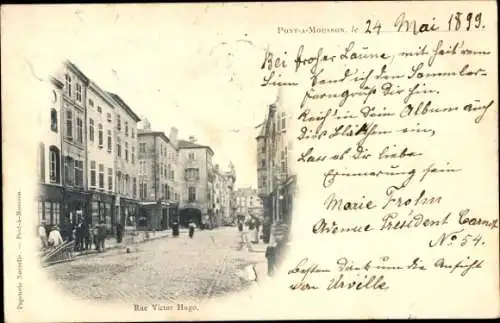 PONT-A-MOUSSON, le 24 Mai 1899.
Bei froher Laune, mit heiterm
Sinn send ich den Sammler-
gruß Dir hin.
Reih' in Dein Album auch
dies Blättchen ein,
Lass es Dir liebe
Erinnerung sein
Marie Frohn
Avenue President Carnot
No 54.
Besten Dank für die Ansicht
von Urville
Rue Victor Hugo.
Papeterie Nouvelle — Pont-à-Mousson.